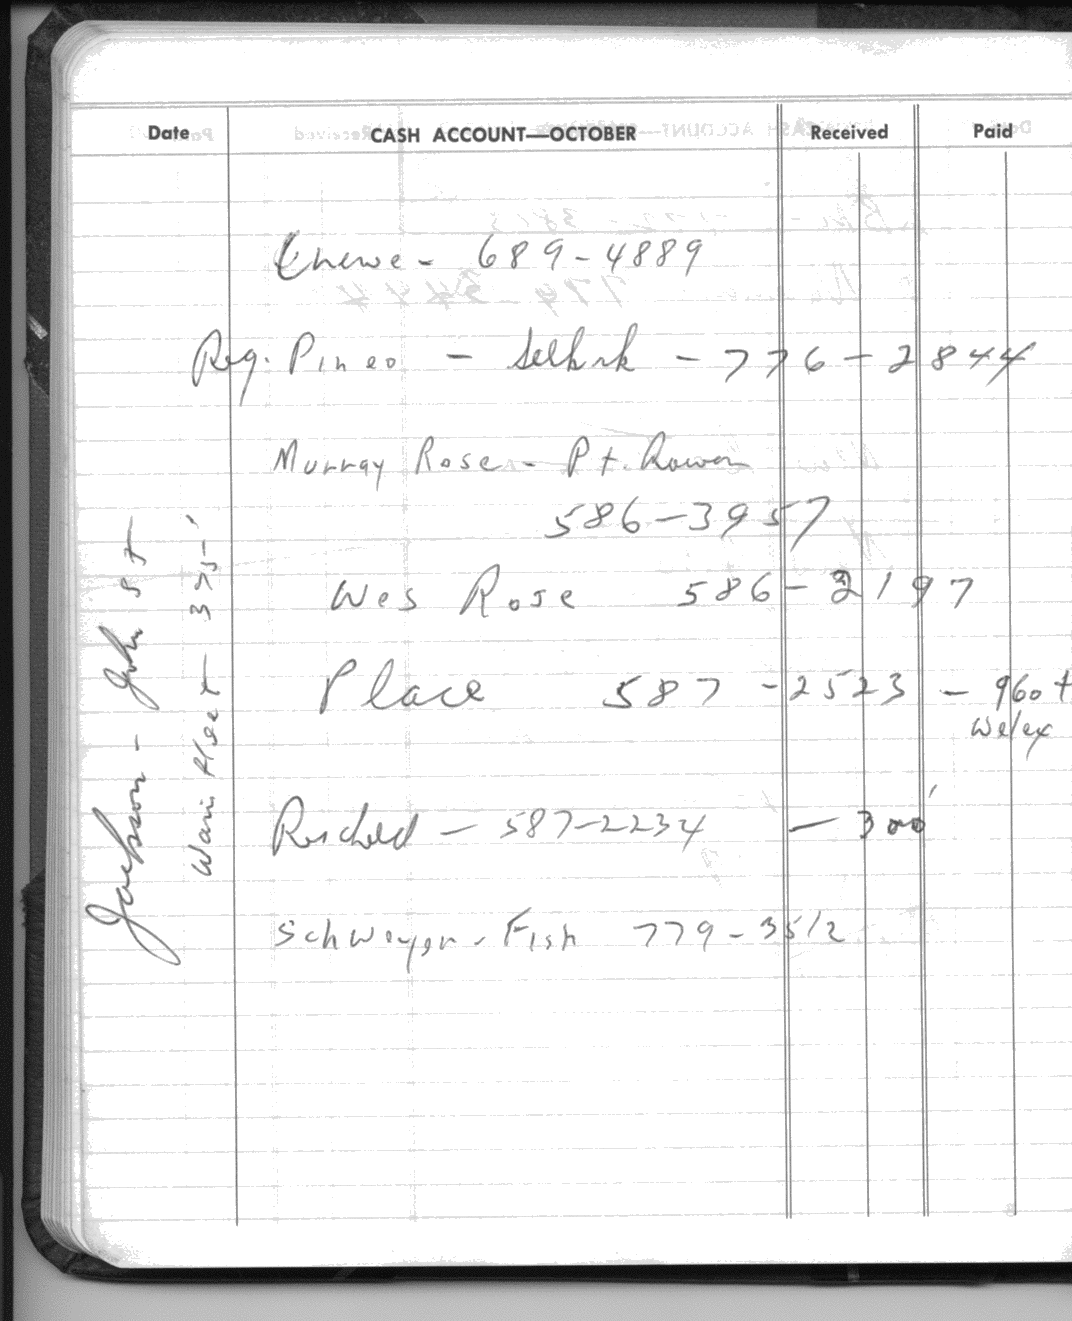 Date CASH ACCOUNT—OCTOBER Received Paid
- 689-4889
Reg. Pineo - Selkirk - 776-2844
Murray Rose - Pt. Rowan
586-3957
Wes Rose 586-2197
Place 587-2523 - 960 +
Welex
- 587-2234 - 300'
Schweyer - Fish 779-3512
Jackson - John St
Wainfleet 375'